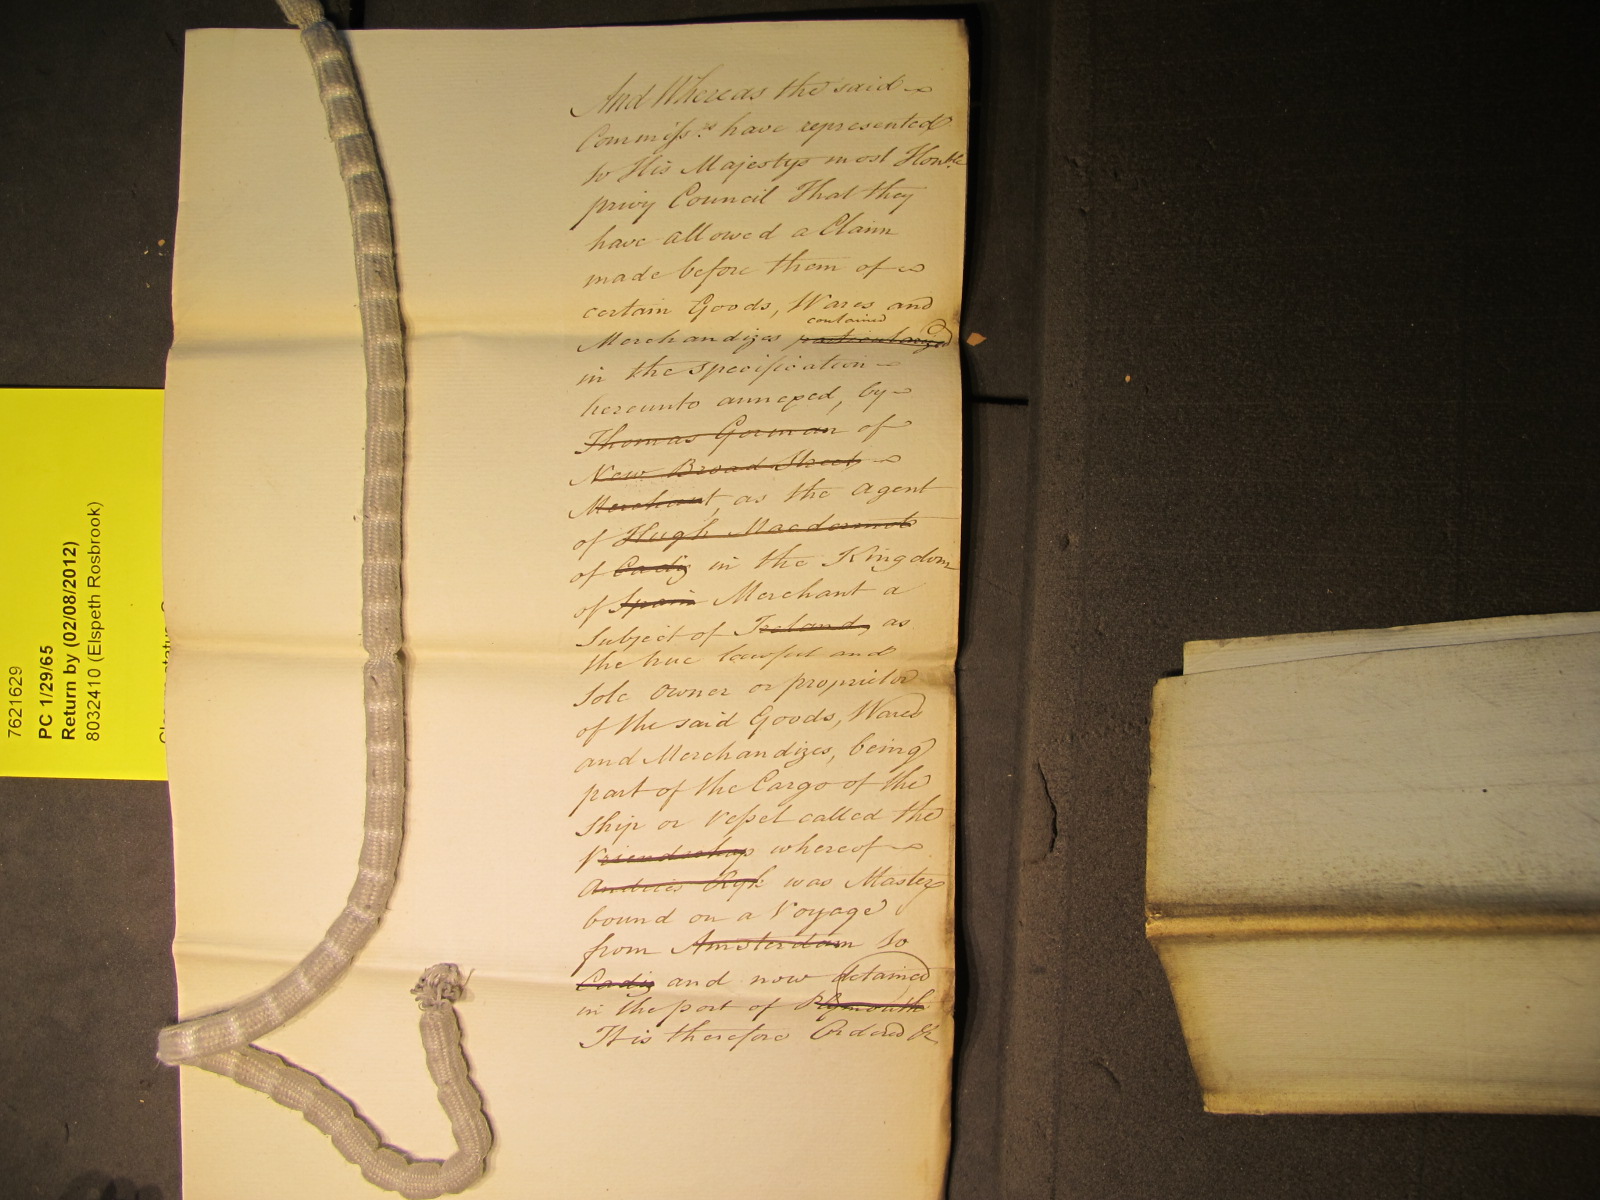 And Whereas the said
Commiss.rs have represented
to His Majestys most Honble
privy Council That they
have allowed a Claim
made before them of
certain Goods, Wares and
contained
Merchandizes particularized
in the specification
hereunto annexed, by
Thomas Gorman of
New Broad Street
Merchant, as the Agent
of Hugh Macdermot
of Cadiz in the Kingdom
of Spain Merchant a
Subject of Ireland, as
the true lawful and
sole owner or proprietor
of the said Goods, Wares
and Merchandizes, being
part of the Cargo of the
Ship or Vessel called the
Vriendschap whereof
Andries Ryk was Master
bound on a Voyage
from Amsterdam to
Cadiz and now detained
in the port of Plymouth
It is therefore Ordered &c
7621629
PC 1/29/65
Return by (02/08/2012)
8032410 (Elspeth Rosbrook)